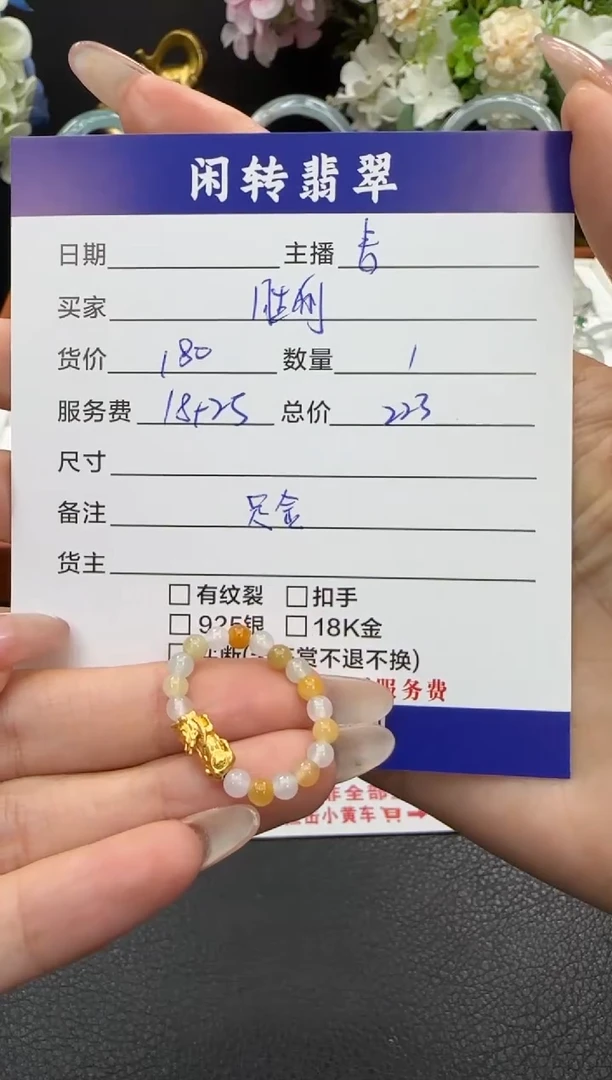 闲转翡翠
日期 主播 吉
买家 胜利
货价 180 数量 1
服务费 18+25 总价 223
尺寸
备注 足金
货主
□ 有纹裂 □ 扣手
□ 925银 □ 18K金
赏不退不换)
服务费
全部
击小黄车